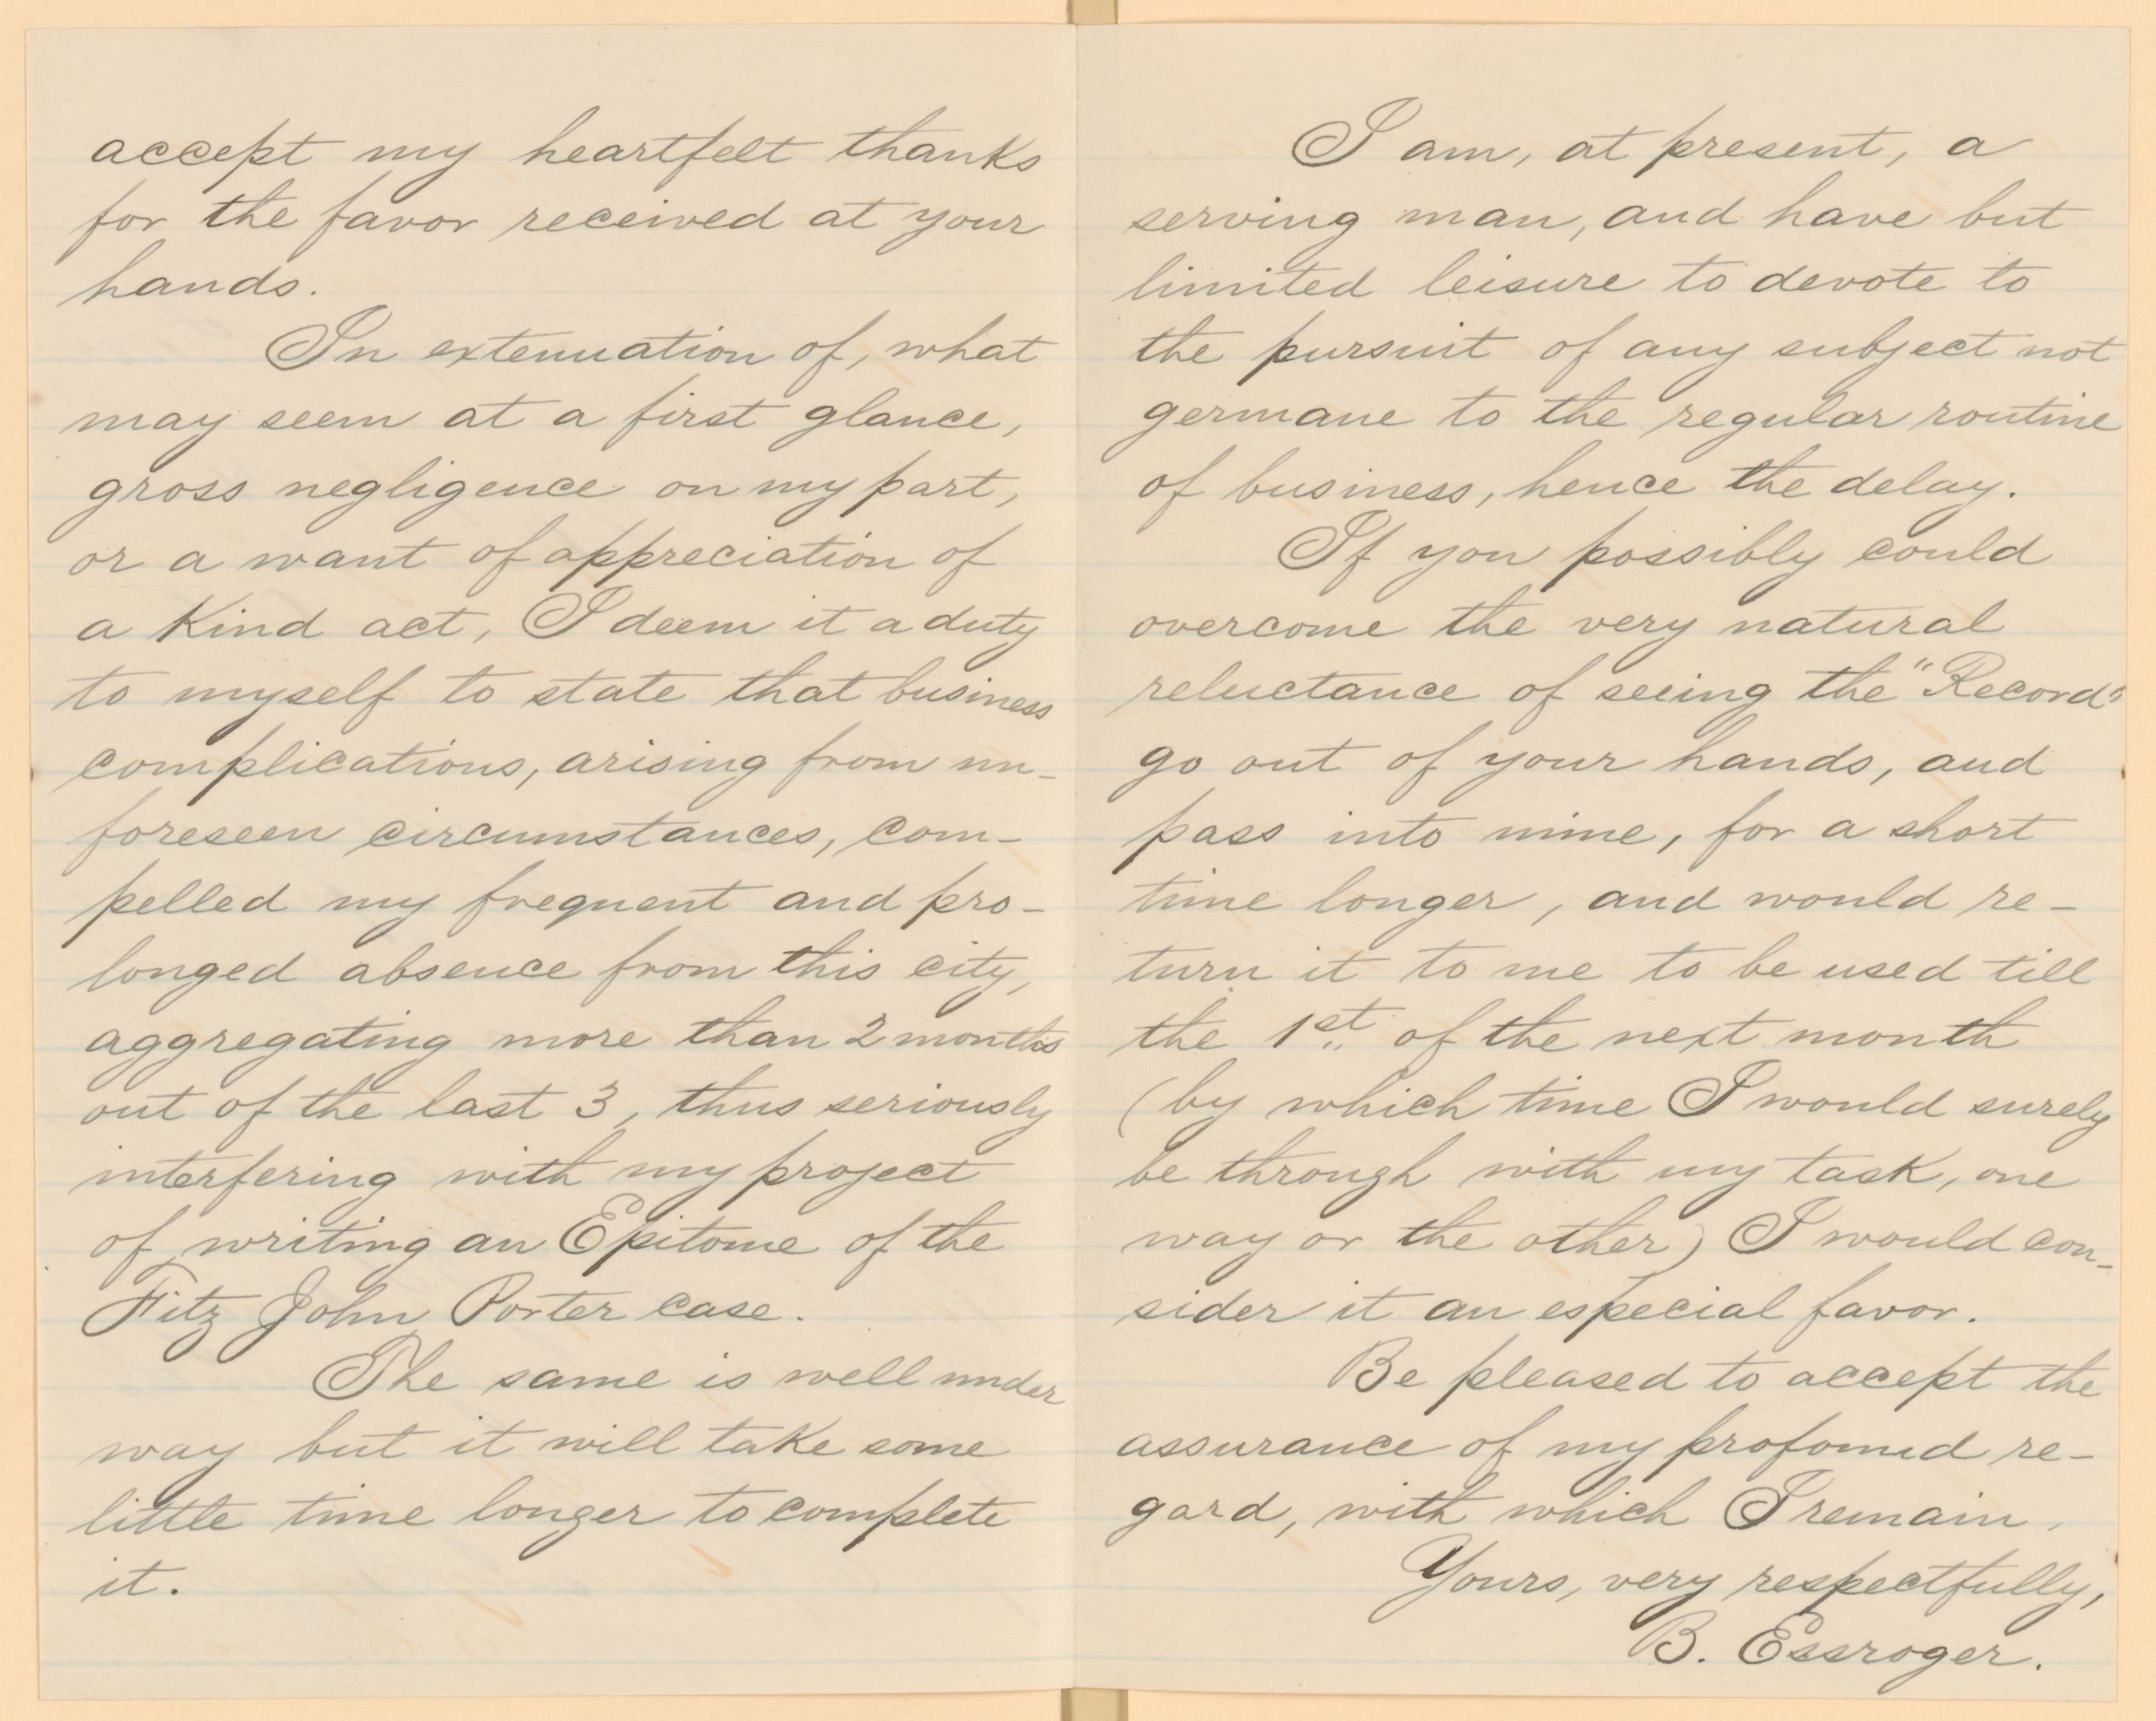 accept my heartfelt thanks
for the favor received at your
hands.
In extenuation of, what
may seem at a first glance,
gross negligence on my part,
or a want of appreciation of
a Kind act, I deem it a duty
to myself to state that business
complications, arising from un-
foreseen circumstances, com-
pelled my frequent and pro-
longed absence from this city,
aggregating more than 2 months
out of the last 3, thus seriously
interfering with my project
of writing an Epitome of the
Fitz John Porter case.
The same is well under
way but it will take some
little time longer to complete
it.
I am, at present, a
serving man, and have but
limited leisure to devote to
the pursuit of any subject not
germane to the regular routine
of business, hence the delay.
If you possibly could
overcome the very natural
reluctance of seeing the "Record"
go out of your hands, and
pass into mine, for a short
time longer, and would re-
turn it to me to be used till
the 1st of the next month
(by which time I would surely
be through with my task, one
way or the other) I would con-
sider it an especial favor.
Be pleased to accept the
assurance of my profound re-
gard, with which I remain,
Yours, very respectfully,
B. Essroger.